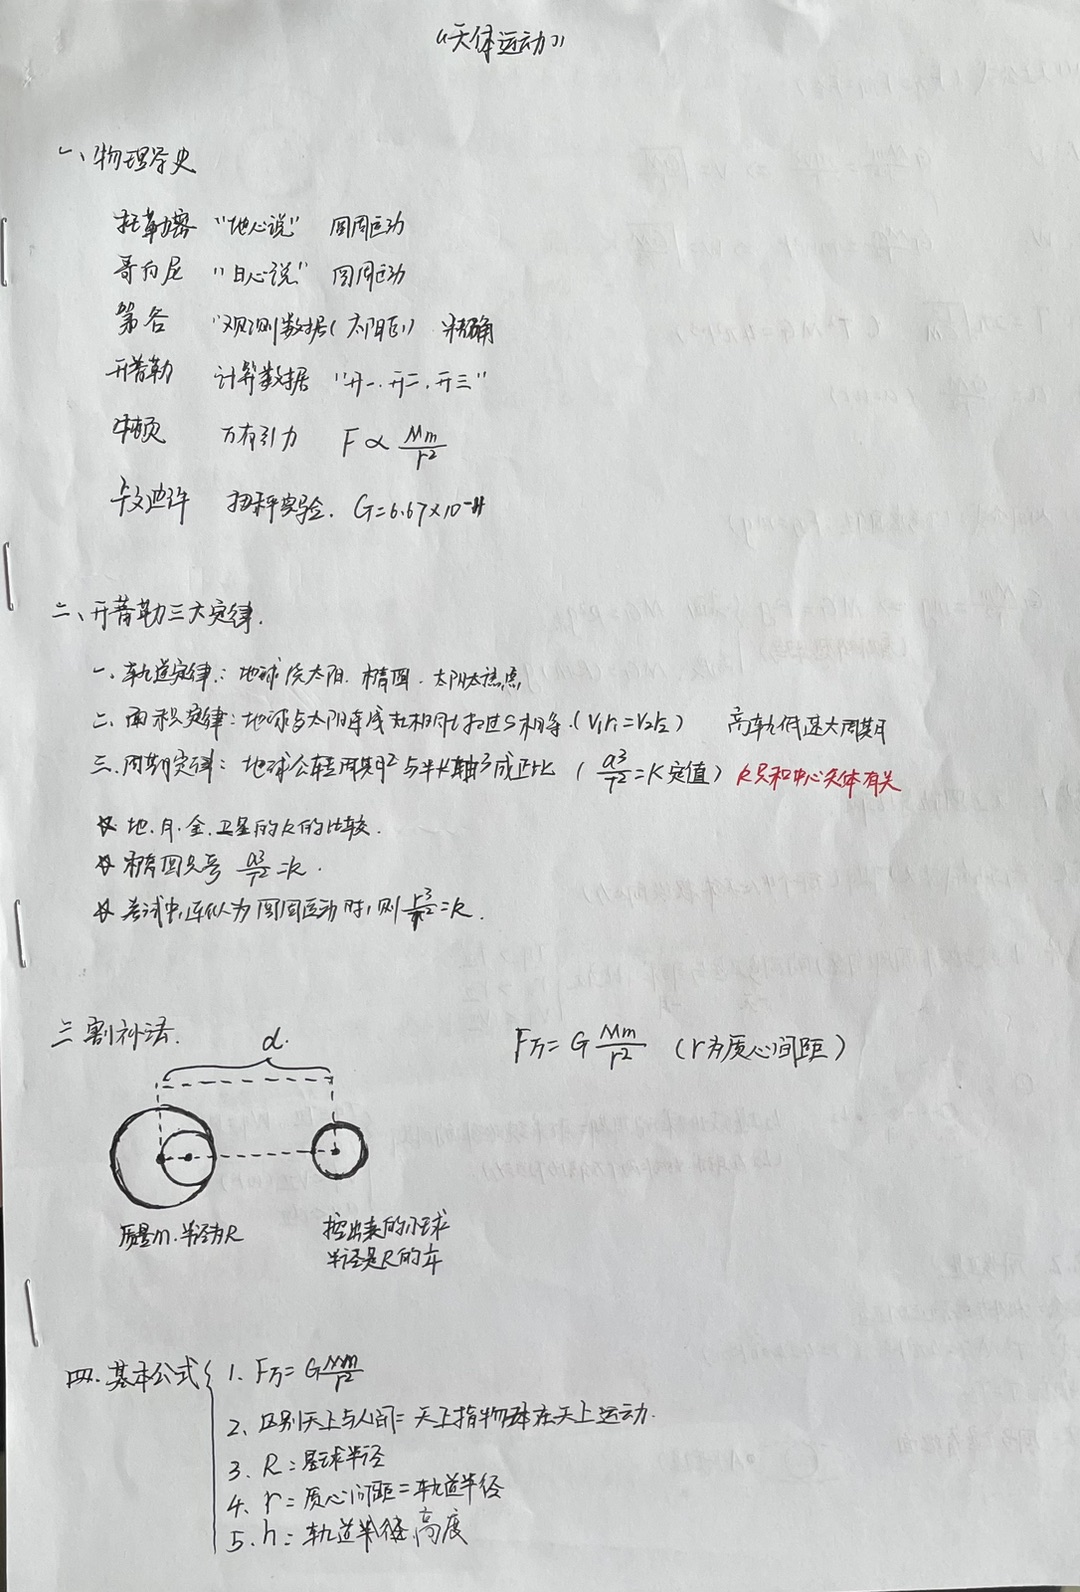 《天体运动》
一、物理学史
托勒密 “地心说” 圆周运动
哥白尼 “日心说” 圆周运动
第谷 “观测数据(太阳系)” 精确
开普勒 计算数据 “开一、开二、开三”
牛顿 万有引力 F∝Mm/r²
卡文迪许 扭秤实验. G=6.67×10⁻¹¹
二、开普勒三大定律.
一、轨道定律: 地球绕太阳. 椭圆. 太阳在焦点
二、面积定律: 地球与太阳连线在相同t扫过S相等. (V₁r₁=V₂r₂) 高轨低速大周期
三、周期定律: 地球公转周期²与半长轴³成正比 (a³/T²=K定值) K只和中心天体有关
☆ 地.月.金.卫星的K的比较.
☆ 椭圆 a³/T²=k.
☆ 考试中,近似为圆周运动时,则r³/T²=K.
三 割补法.
d.
F万=G Mm/r² (r为质心间距)
质量m.半径为R
挖出来的小球
半径是R的
四.基本公式
1. F万=G Mm/r²
2、区别天上与人间= 天上指物体在天上运动.
3. R=星球半径
4、r=质心间距=轨道半径
5.h=轨道 高度